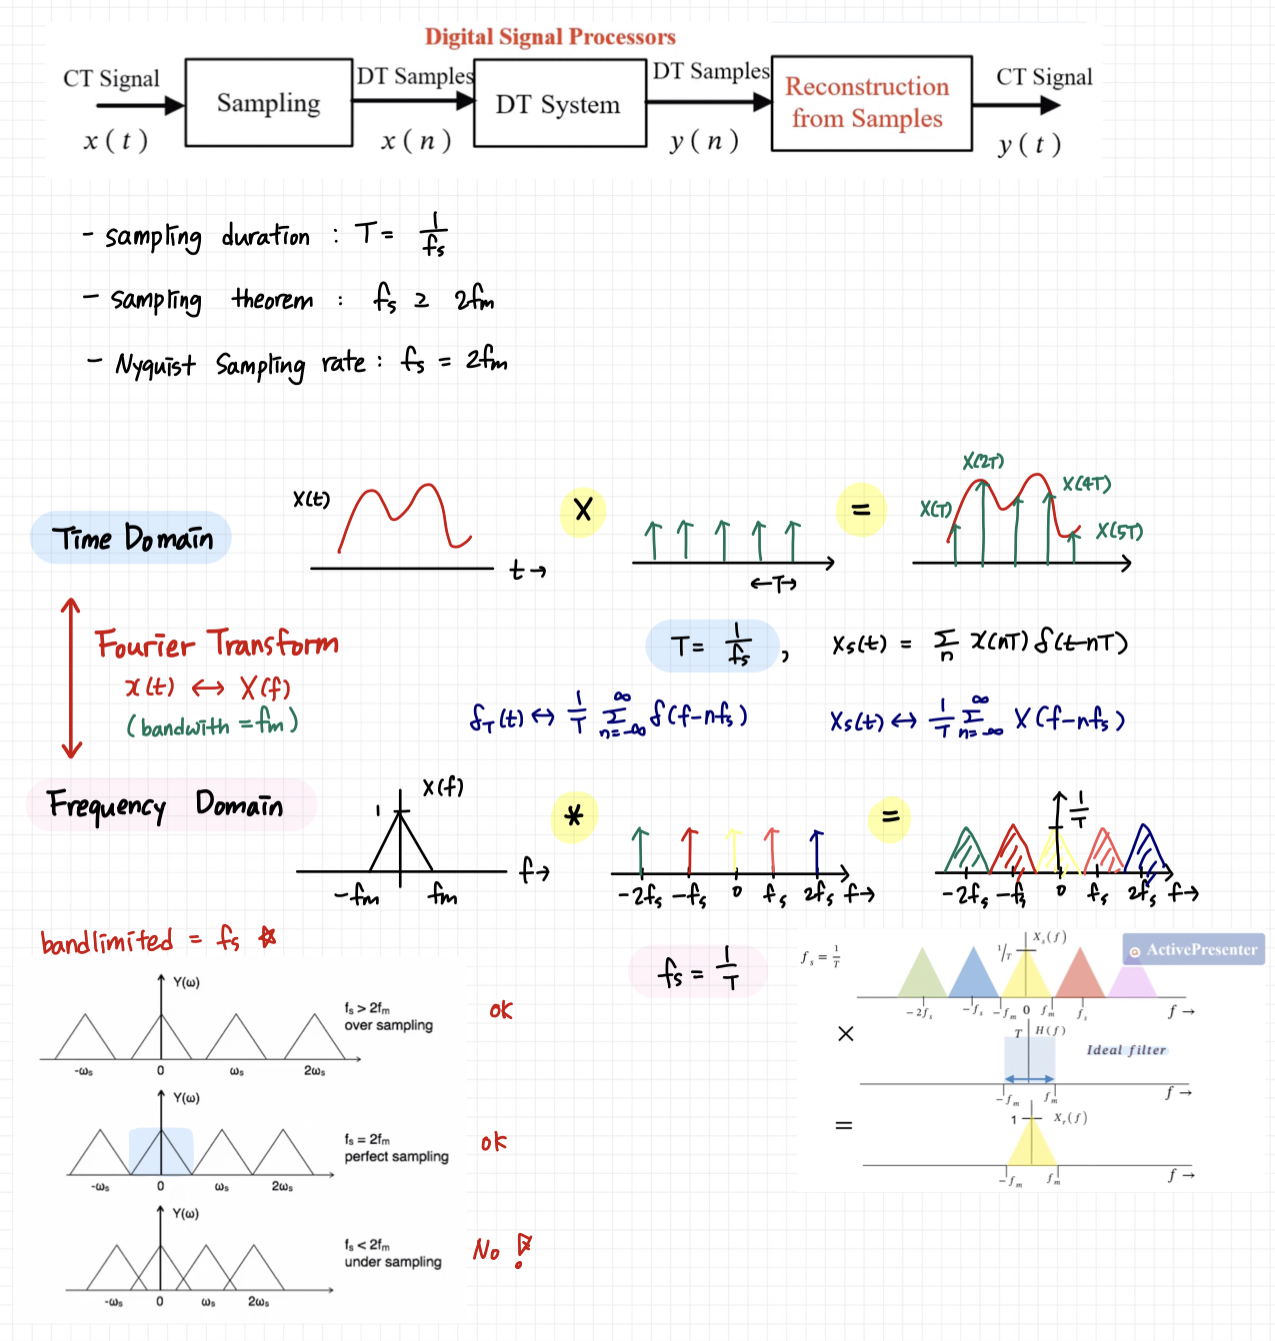 Digital Signal Processors
CT Signal
x(t)
Sampling
DT Samples
x(n)
DT System
DT Samples
y(n)
Reconstruction
from Samples
CT Signal
y(t)
- sampling duration : T = 1/fs
- sampling theorem : fs ≥ 2fm
- Nyquist Sampling rate : fs = 2fm
Time Domain
X(t)
t→
X
←T→
=
X(T)
X(2T)
X(4T)
X(5T)
Fourier Transform
x(t) ↔ X(f)
(bandwith = fm)
T = 1/fs , Xs(t) = Σn x(nT) δ(t-nT)
δT(t) ↔ 1/T Σ n=-∞ ∞ δ(f-nfs)
Xs(t) ↔ 1/T Σ n=-∞ ∞ X(f-nfs)
Frequency Domain
X(f)
1
-fm fm f→
*
-2fs -fs 0 fs 2fs f→
=
1/T
-2fs -fs 0 fs 2fs f→
bandlimited = fs ☆
fs = 1/T
Y(ω)
fs > 2fm
over sampling
ok
-ωs 0 ωs 2ωs
Y(ω)
fs = 2fm
perfect sampling
ok
-ωs 0 ωs 2ωs
Y(ω)
fs < 2fm
under sampling
No !
-ωs 0 ωs 2ωs
fs = 1/T
1/T
Xs(f)
ActivePresenter
-2fs -fs -fm 0 fm fs f→
×
T H(f)
Ideal filter
-fm fm f→
=
1 Xr(f)
-fm fm f→